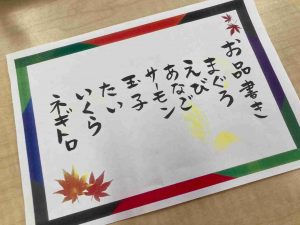 お品書き
まぐろ
えび
あなご
サーモン
玉子
たい
いくら
ネギトロ